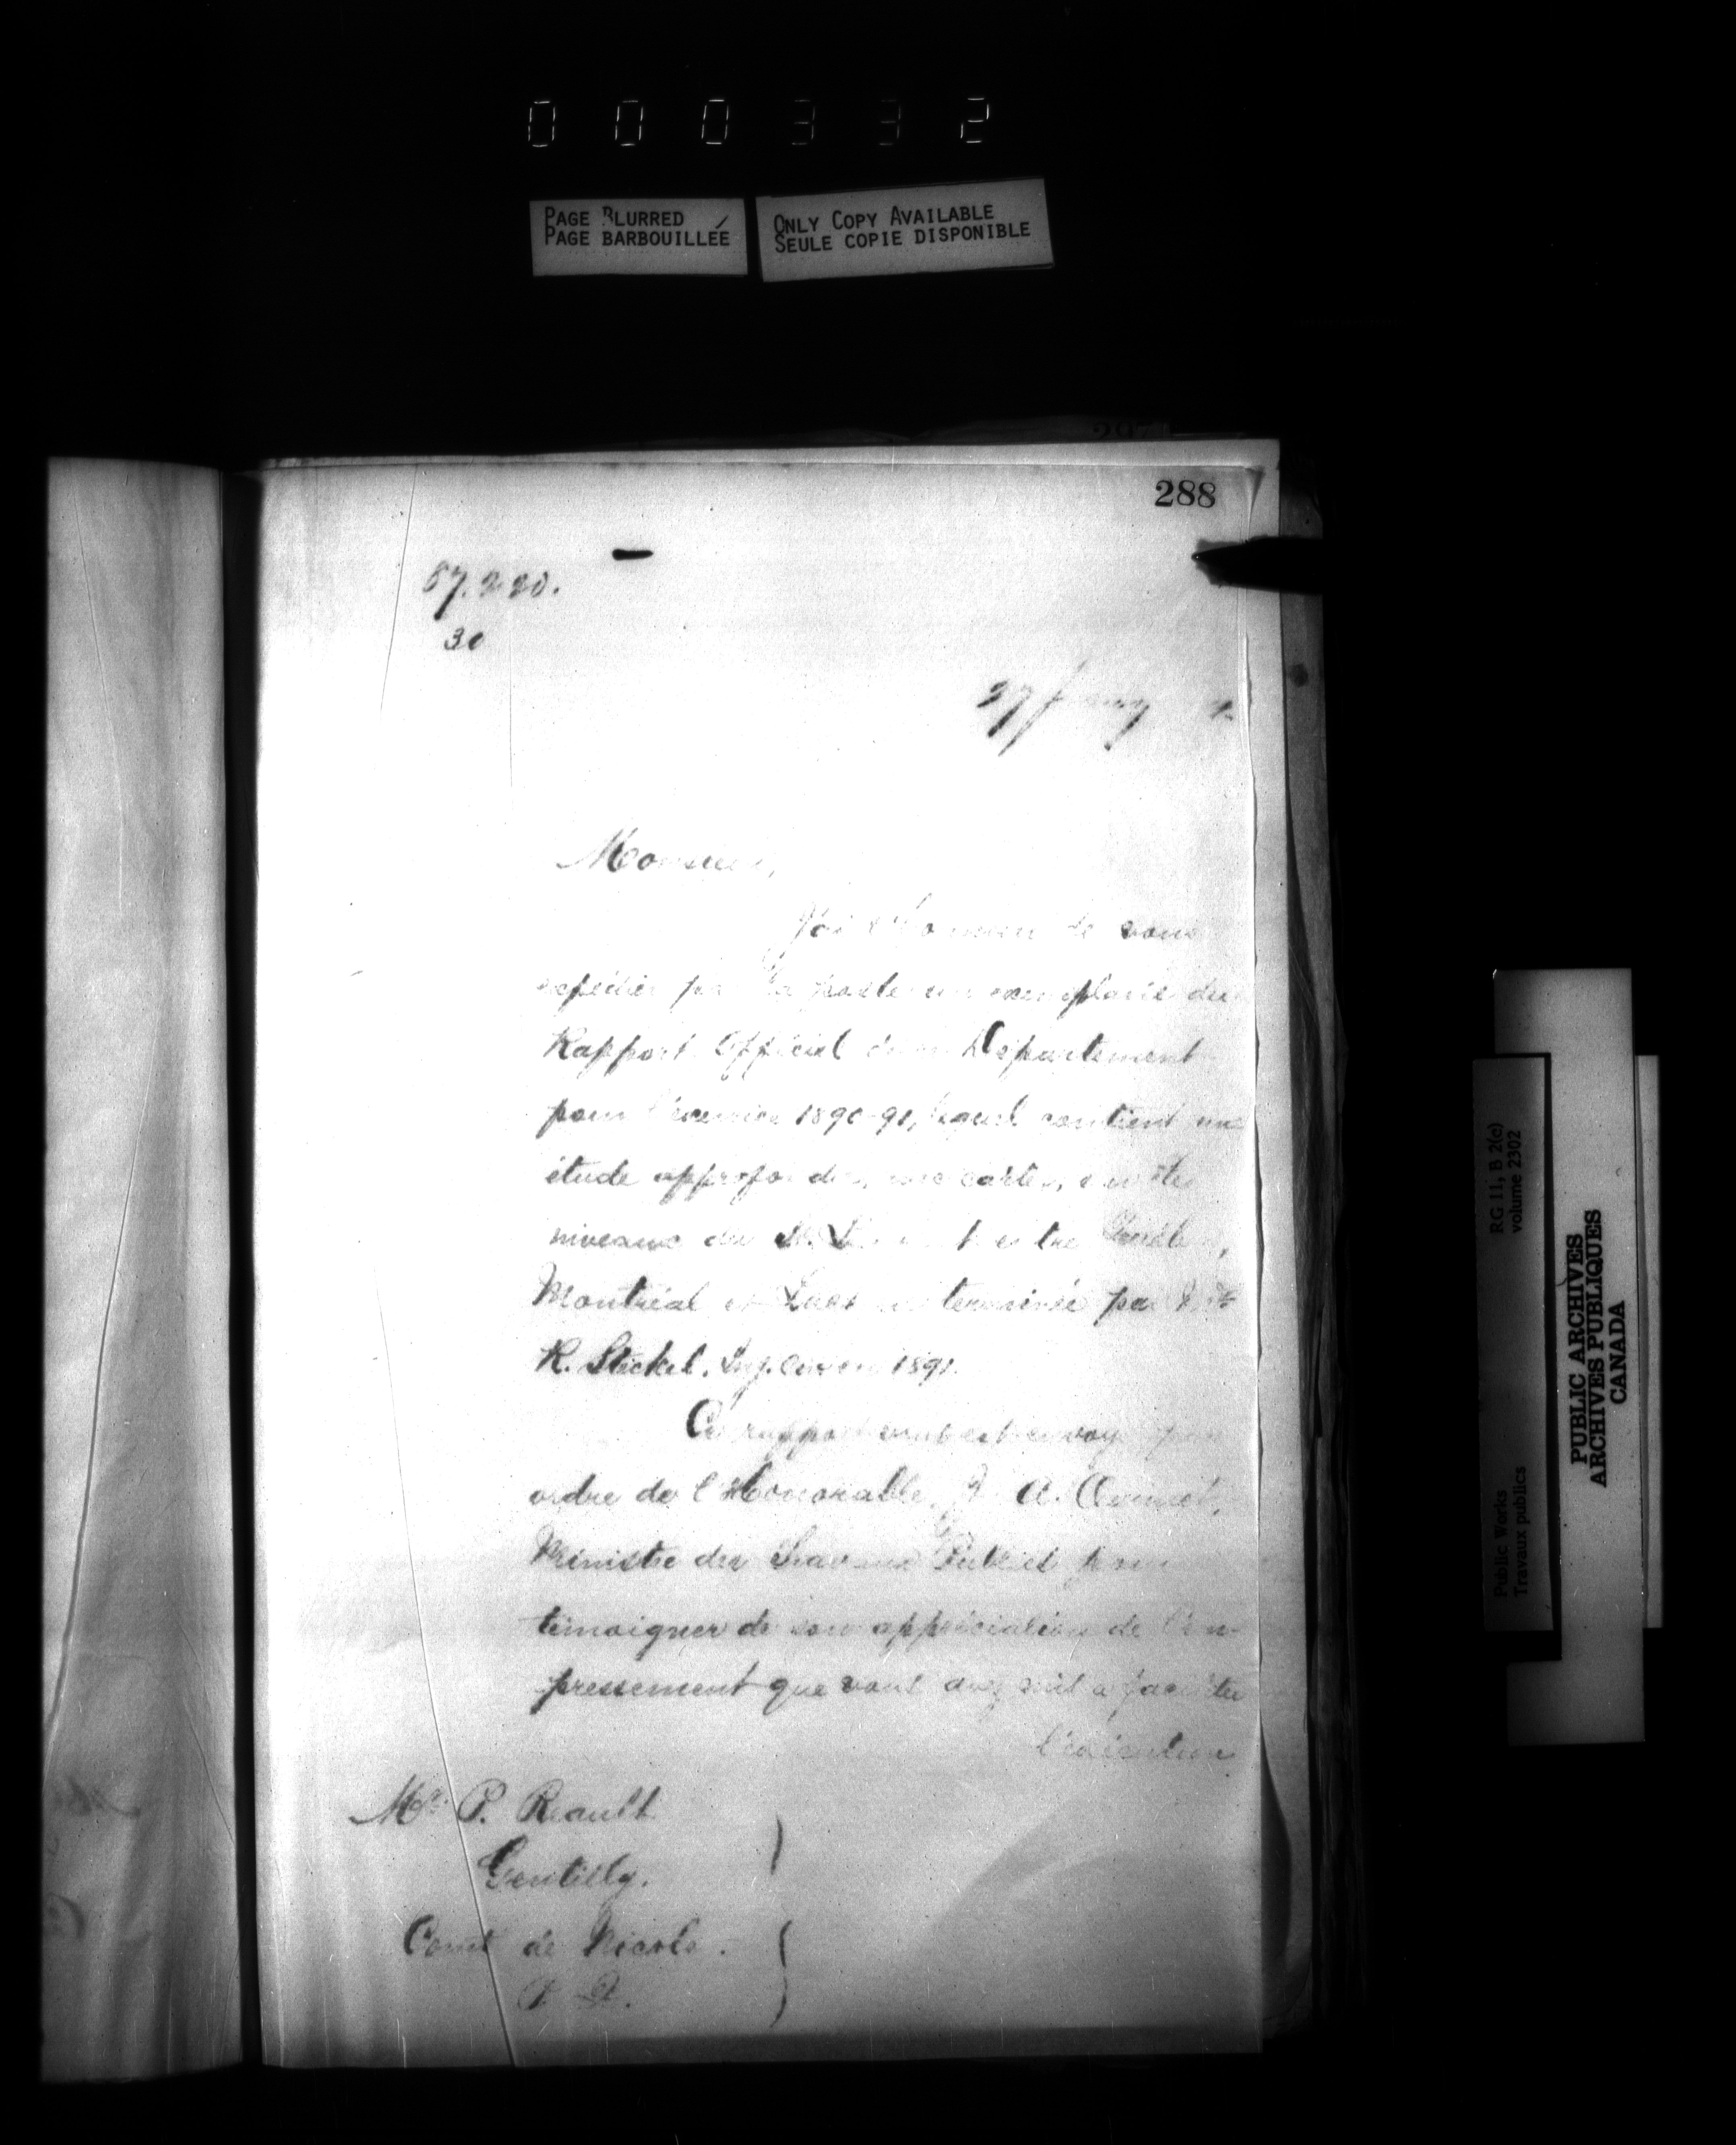 000332
PAGE BLURRED
PAGE BARBOUILLÉE
ONLY COPY AVAILABLE
SEULE COPIE DISPONIBLE
288
30
27
Monsieur,
J'ai l'honneur de vous
expédier par la poste un exemplaire du
Rapport Officiel de Département
pour l'exercice 1890-91, lequel contient une
étude approfondie, cartes,
niveaux du St. entre
Montréal et terminée par
R. Steckel. Ing. 1891.
Ce rapport vous est envoyé par
ordre de l'Honorable J. A. Ouimet,
Ministre des Travaux Publics pour
témoigner de son appréciation de l'em-
pressement que vous avez mis à faciliter
l'exécution
Mr. P.
Gentilly.
Comté de Nicolet.
P. Q.
RG 11, B 2(c)
volume 2302
Public Works
Travaux publics
PUBLIC ARCHIVES
ARCHIVES PUBLIQUES
CANADA